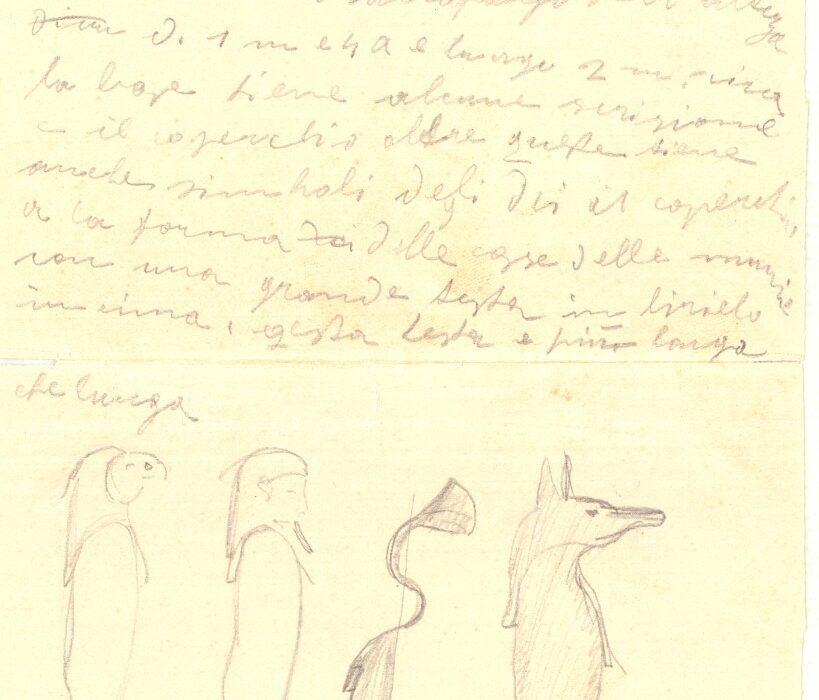 altezza
di 1 m e 40 e lungo 2 m. circa
la base tiene alcune iscrizione
e il coperchio oltre queste tiene
anche simboli degli Dei il coperchio
a la forma delle casse delle mummie
con una grande testa in
in cima, questa testa e più larga
che lunga